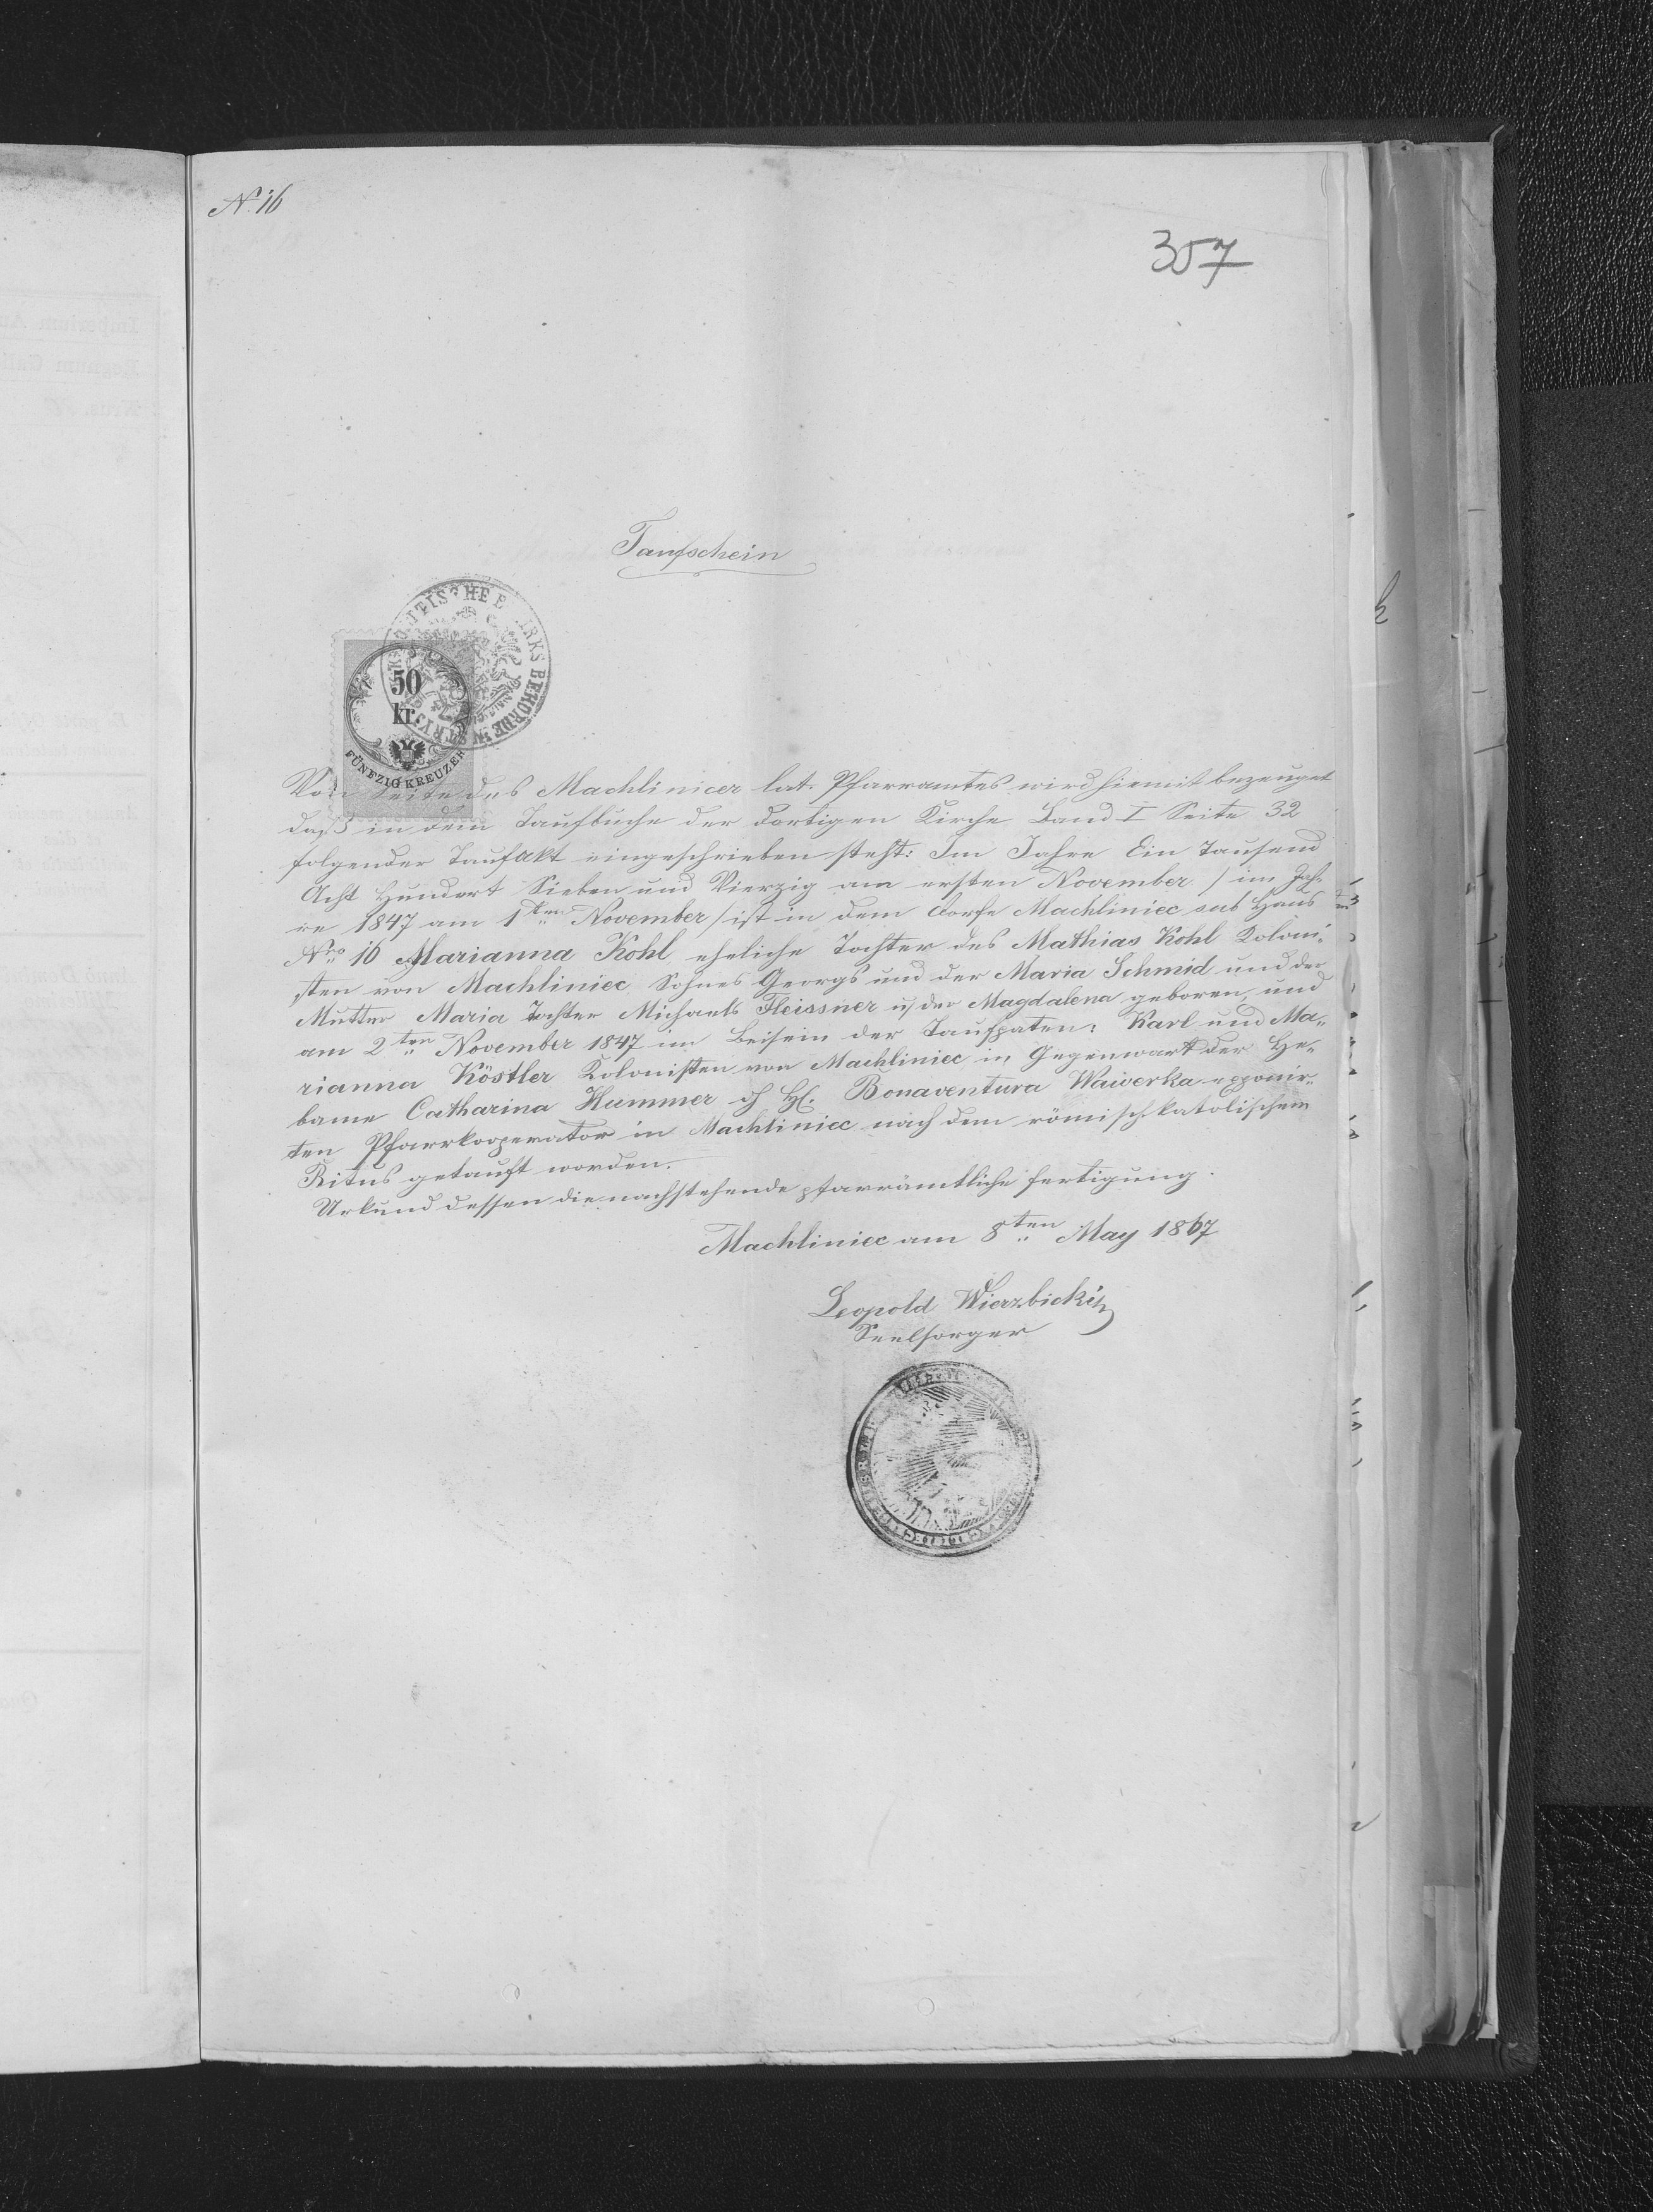 N. 16
357
Taufschein
50
kr.
FÜNFZIG KREUZER
Von Seite des Machlinicer lat. Pfarramtes wird hiemit bezeuget
daß in dem Taufbuche der dortigen Kirche Band I Seite 32
folgender Taufakt eingeschrieben steht: Im Jahre Ein Tausend
Acht Hundert Sieben und Vierzig am ersten November / im Jah-
re 1847 am 1ten November / ist in dem Dorfe Machliniec sub Haus
Nro 16 Marianna Kohl eheliche Tochter des Mathias Kohl Koloni-
sten von Machliniec Sohnes Georgs und der Maria Schmid und der
Mutter Maria Tochter Michaels Fleissner u. der Magdalena geboren, und
am 2ten November 1847 im Beisein der Taufpaten: Karl und Ma-
rianna Köstler Kolonisten von Machliniec in Gegenwart der He-
bame Catharina Hummer H. Bonaventura Waiverka exponir-
ten Pfarrkooperator in Machliniec nach dem römisch katolischem
Ritus getauft worden.
Urkund dessen die nachstehende pfarrämtliche fertigung.
Machliniec am 8ten May 1867
Leopold Wierzbicki
Seelsorger